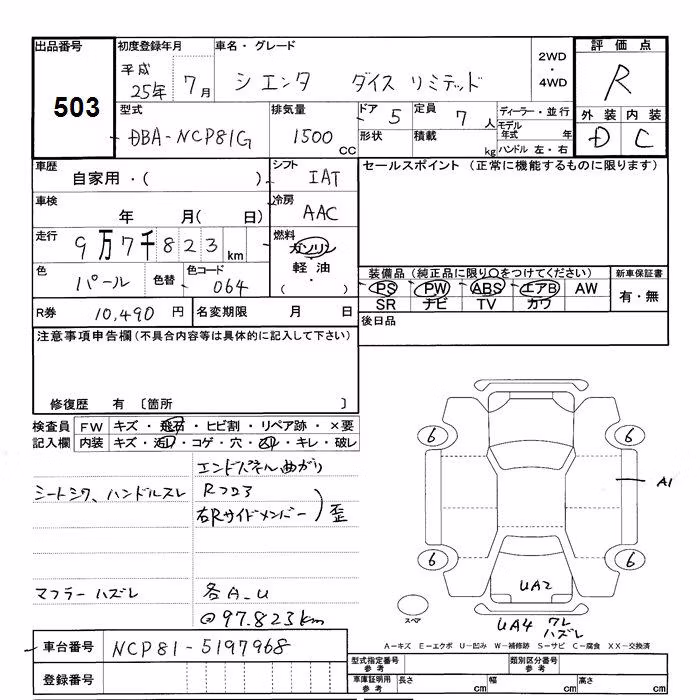 出品番号
503
初度登録年月
平成 25年 7月
車名・グレード
シエンタ ダイス リミテッド
2WD
・
4WD
評価点
R
外装 内装
D C
型式
DBA-NCP81G
排気量
1500 CC
ドア 5
形状
定員 7 人
積載 kg
ディーラー・並行
モデル年式 年
ハンドル 左・右
車歴
自家用・( )
シフト
IAT
セールスポイント (正常に機能するものに限ります)
車検
年 月( 日)
冷房
AAC
走行
9万7千823km
燃料
ガソリン
軽油
( ・ )
色
パール
色替
色コード
064
装備品(純正品に限り○をつけてください)
PS PW ABS エアB AW
SR ナビ TV カワ
新車保証書
有・無
R券 10,490 円
名変期限 月 日
後日品
注意事項申告欄(不具合内容等は具体的に記入して下さい)
修復歴 有 〔箇所 〕
検査員記入欄
FW キズ・飛石・ヒビ割・リペア跡・×要
内装 キズ・汚れ・コゲ・穴・スレ・キレ・破レ
エンドパネル曲がり
シートシワ、ハンドルスレ
Rフロア
右Rサイドメンバー
歪
マフラーハズレ
各A.U
@97.823km
6 6
A1
6 6
UA2
スペア
UA4 ワレ
ハズレ
A=キズ E=エクボ U=凹み W=補修跡 S=サビ C=腐食 XX=交換済
車台番号 NCP81-5197968
登録番号
型式指定番号 参考
類別区分番号 参考
車庫証明用 参考
長さ cm 幅 cm 高さ cm